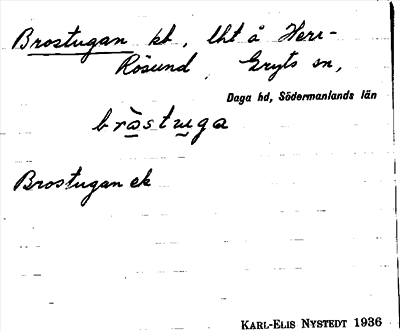 Brostugan kt, lht å Herr-
Rösund, Gryts sn,
Daga hd, Södermanlands län
bròstuga
Brostugan ek
KARL-ELIS NYSTEDT 1936